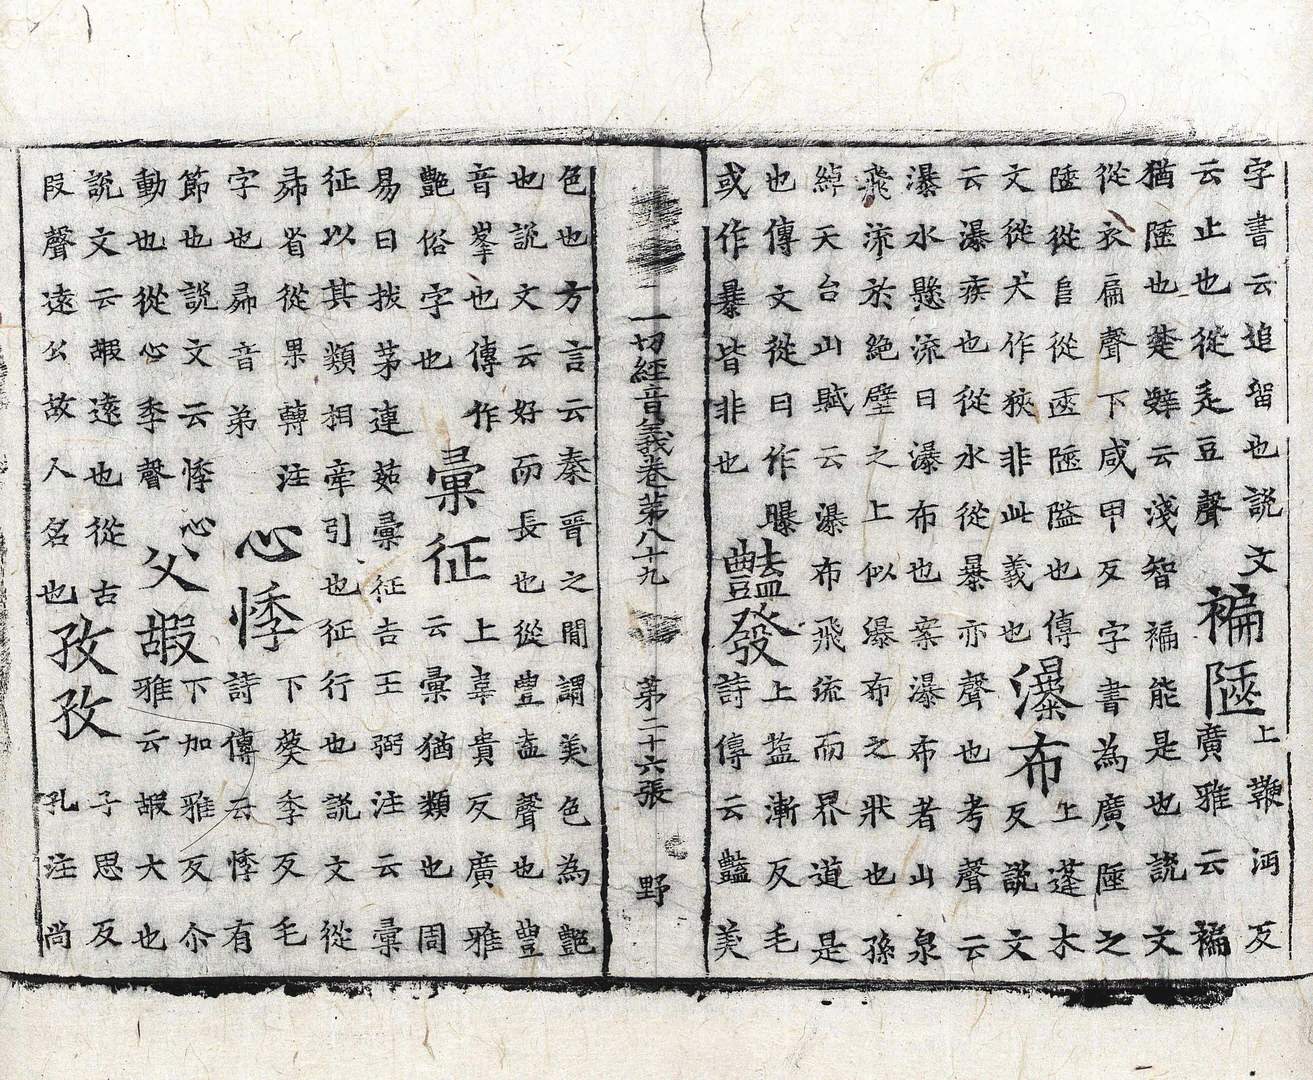 字書云追留也說文
云止也從辵豆聲褊陋上鞭沔反
廣雅云褊
猶陋也楚辭云淺智褊能是也說文
從衣扁聲下咸甲反字書為廣陋之
陋從𨸏從㔷陋隘也傳
文從犬作狹非此義也瀑布上蓬木
反說文
云瀑疾也從水從暴亦聲也考聲云
瀑水懸流曰瀑布也案瀑布者山泉
飛流於絕壁之上似瀑布之狀也孫
綽天台山賦云瀑布飛流而界道是
也傳文從日作曝
或作暴皆非也豔發上塩漸反毛
詩傳云豔美
一切經音義卷第八十九 第二十六張 野
色也方言云秦晉之間謂美色為艷
也說文云好而長也從豐盍聲也豐
音峯也傳作
艷俗字也彙征上韋貴反廣雅
云彙猶類也周
易曰拔茅連茹彙征吉王弼注云彙
征以其類相牽引也征行也說文從
㣇省從果轉注
字也㣇音弟心悸下葵季反毛
詩傳云悸有
節也說文云悸心
動也從心季聲父嘏下加雅反尒
雅云嘏大也
說文云嘏遠也從古
叚聲遠公故人名也孜孜子思反
孔注尚